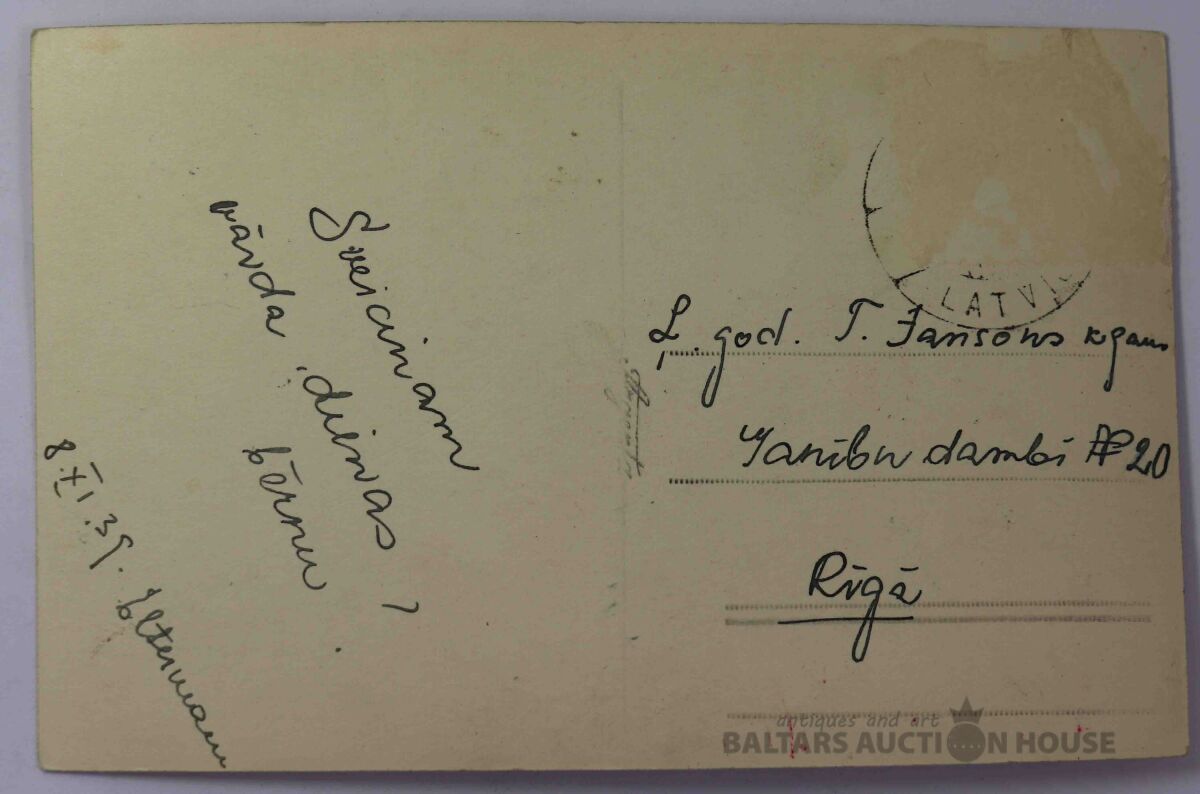 Sveicinam
vārda dienas
bērnu
8.XI.39.
LATVI
Ļ. god. T. Jansons kgam
Ganību dambī № 20
Rīgā
antiques and art
BALTARS AUCTION HOUSE